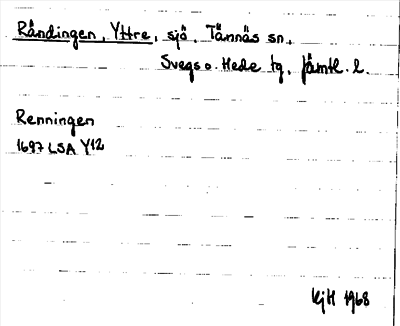 Råndingen, Yttre, sjö, Tännäs sn,
Svegs o. Hede tg, Jämtl. l.
Renningen
1697 LSA Y12
KjH 1968